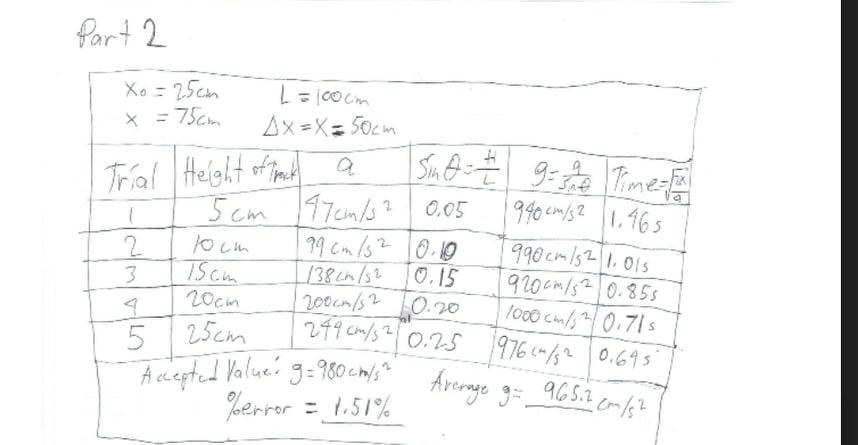 Part 2
X₀ = 25cm L = 100cm
x = 75cm Δx = X = 50cm
Trial Height of Track a Sin θ = H/L g = a/Sinθ Time = √2x/a
1 5cm 47cm/s² 0.05 940cm/s² 1.46s
2 10cm 99cm/s² 0.10 990cm/s² 1.01s
3 15cm 138cm/s² 0.15 920cm/s² 0.85s
4 20cm 200cm/s² 0.20 1000cm/s² 0.71s
5 25cm 244cm/s² 0.25 976cm/s² 0.64s
Accepted Value: g = 980cm/s² Average g = 965.2 cm/s²
% error = 1.51%